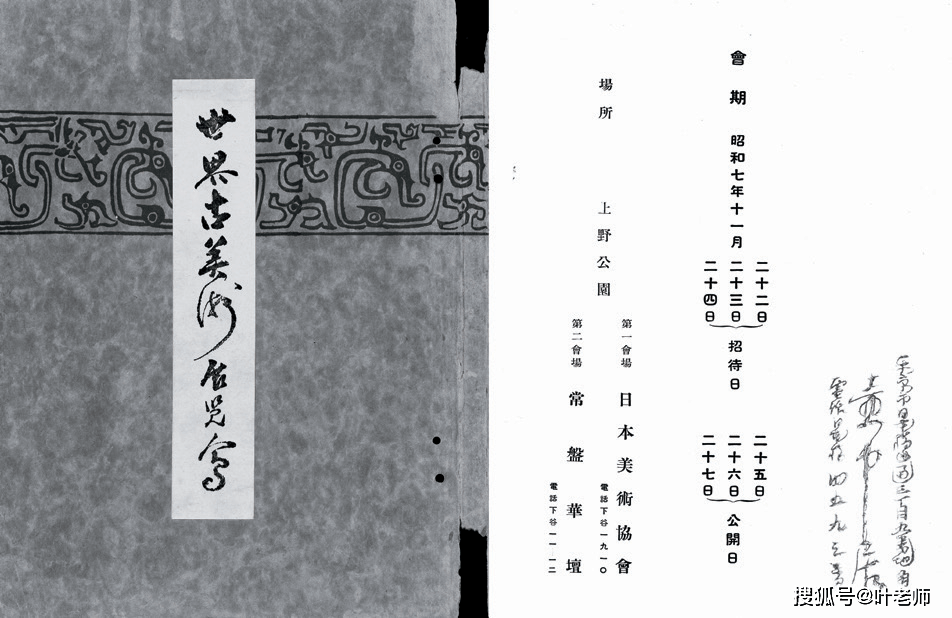 世界古美術展覽會
會期 昭和七年十一月
二十二日
二十三日
二十四日
招待日
二十五日
二十六日
二十七日
公開日
場所 上野公園
第一會場 日本美術協會
電話下谷一九一〇
第二會場 常盤華壇
電話下谷一一一二
搜狐号@叶老师